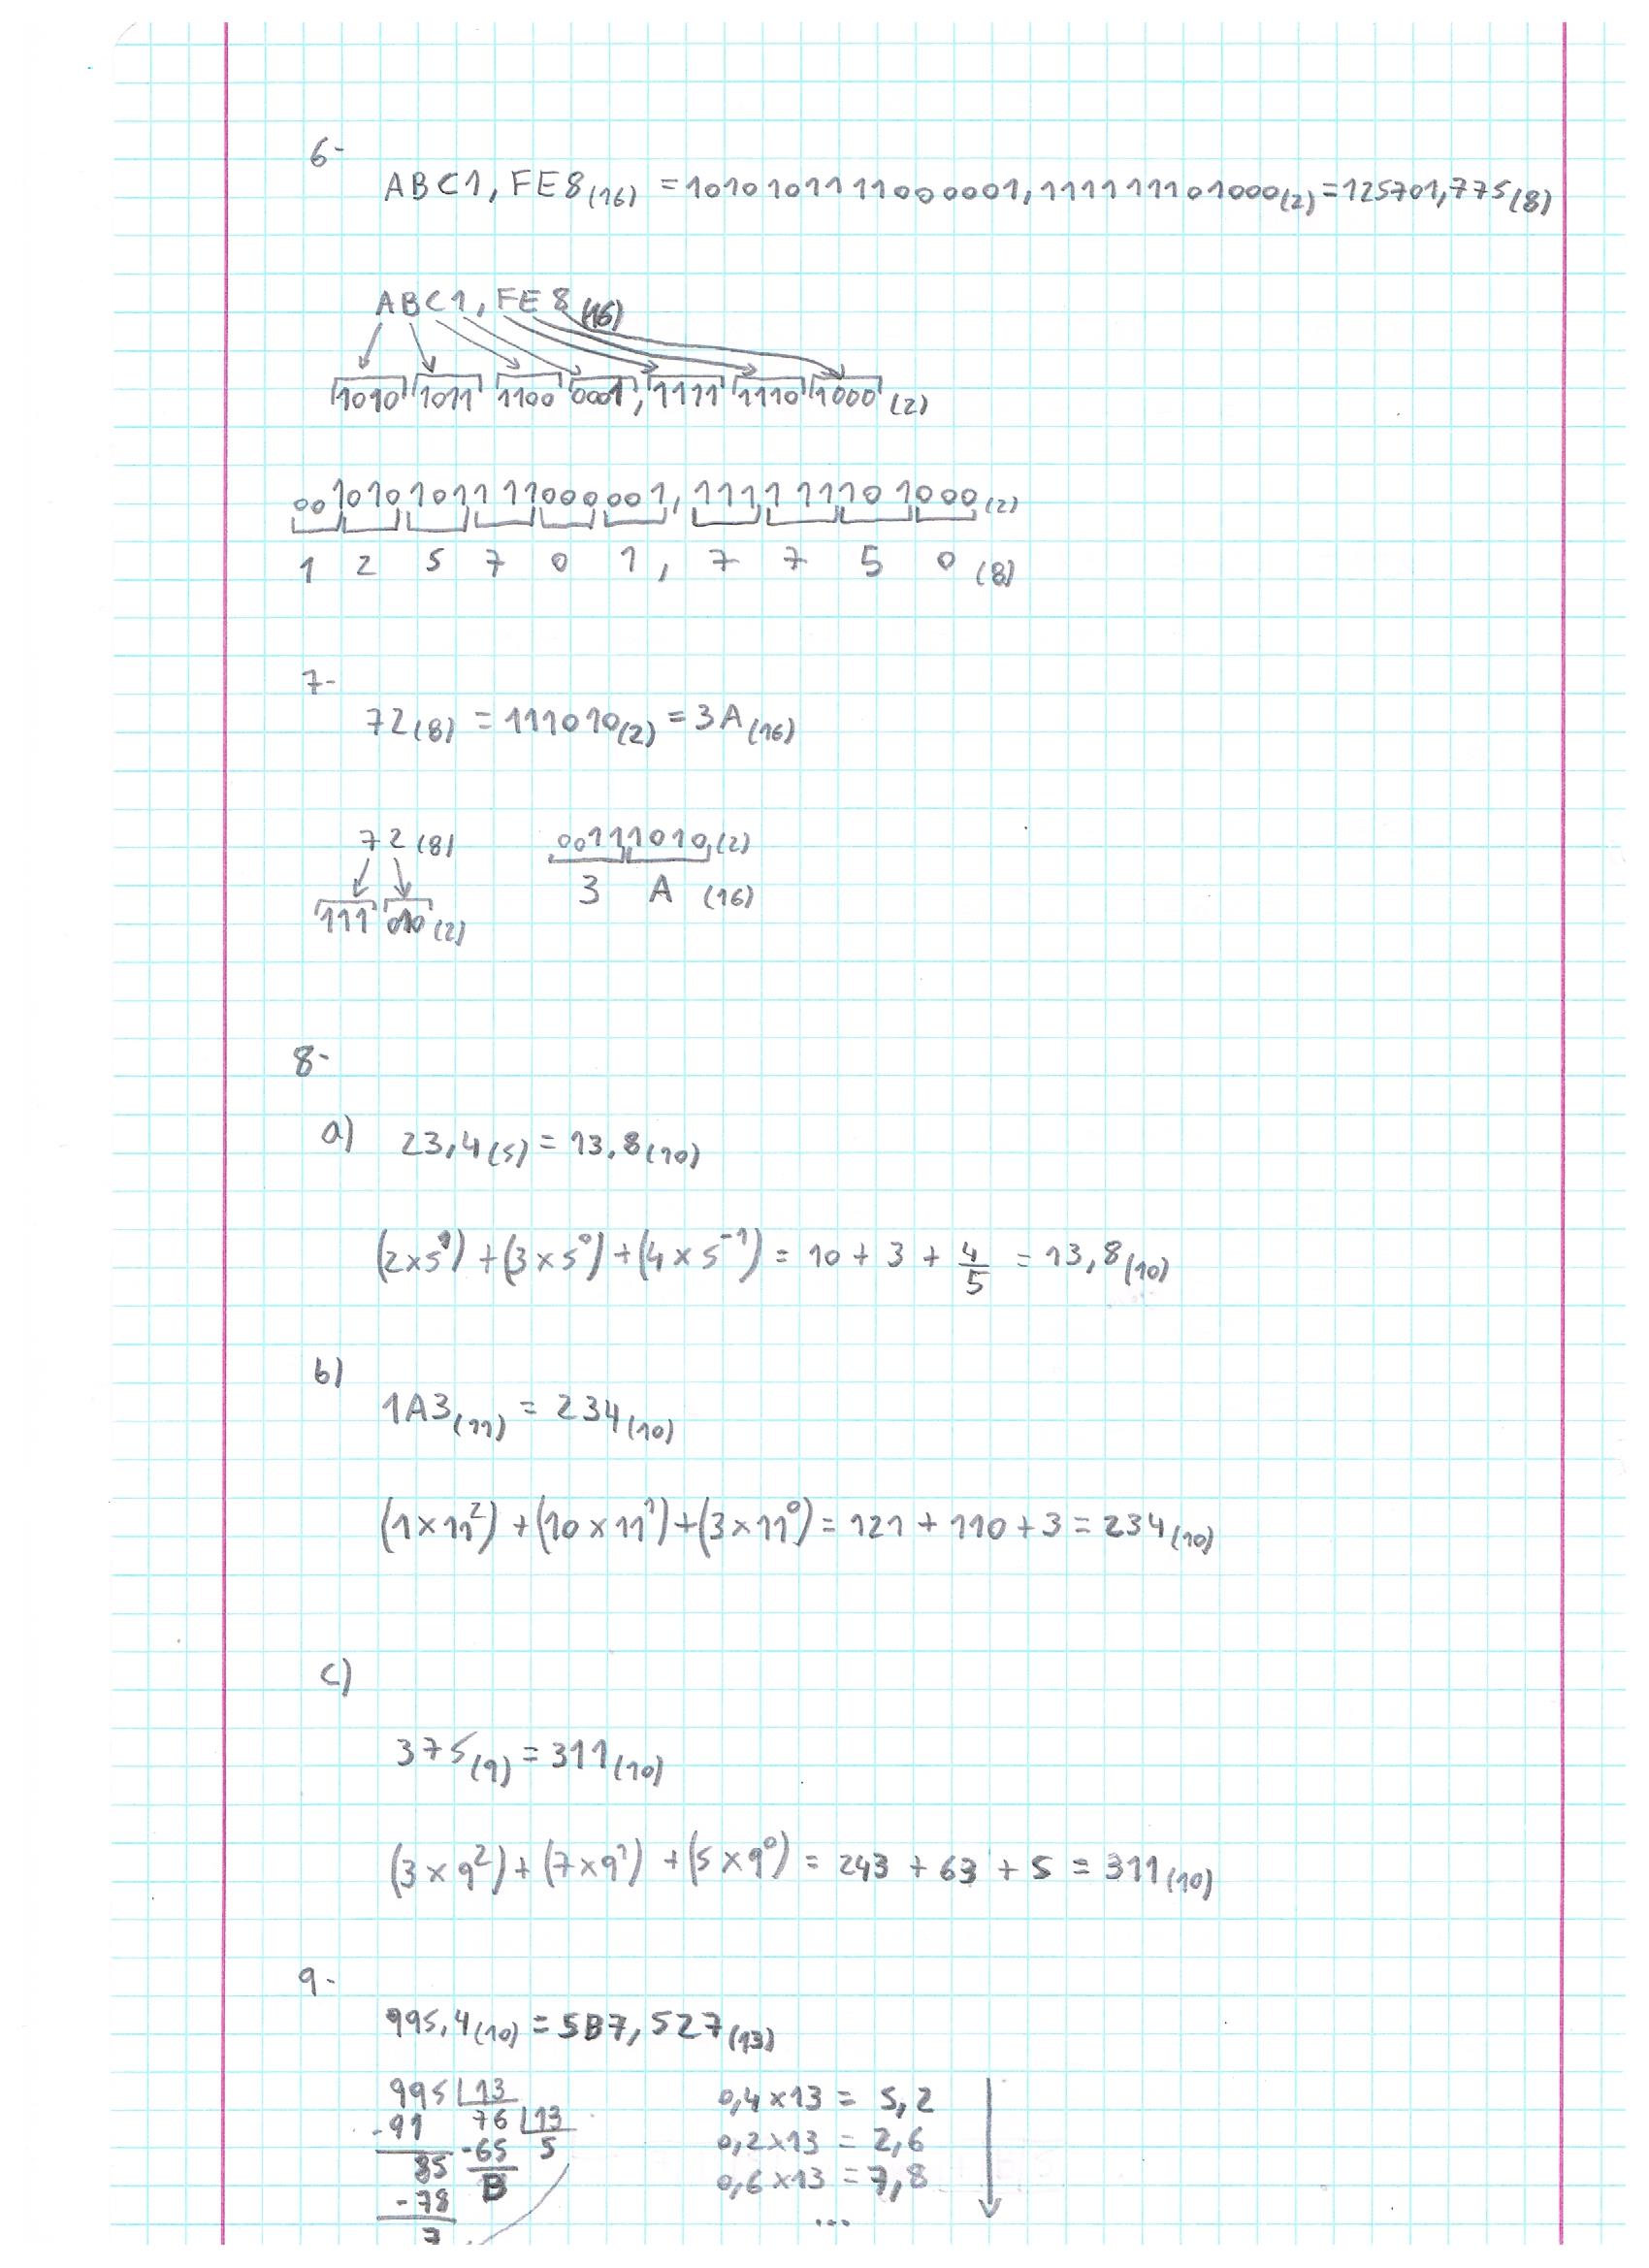 6-
ABC1,FE8(16) = 1010101111000001,111111101000(2) = 125701,775(8)
ABC1,FE8(16)
1010 1011 1100 0001,1111 1110 1000(2)
001010101111000001,111111101000(2)
1 2 5 7 0 1, 7 7 5 0(8)
7-
72(8) = 111010(2) = 3A(16)
72(8) 00111010(2)
3 A (16)
111 010(2)
8-
a) 23,4(5) = 13,8(10)
(2×5¹)+(3×5⁰)+(4×5⁻¹) = 10 + 3 + 4/5 = 13,8(10)
b)
1A3(11) = 234(10)
(1×11²)+(10×11¹)+(3×11⁰) = 121 + 110 + 3 = 234(10)
c)
375(9) = 311(10)
(3×9²)+(7×9¹)+(5×9⁰) = 243 + 63 + 5 = 311(10)
9-
995,4(10) = 5B7,527(13)
995 13 0,4×13 = 5,2
-91 76 13 0,2×13 = 2,6
85 -65 5 0,6×13 = 7,8
-78 B ...
7